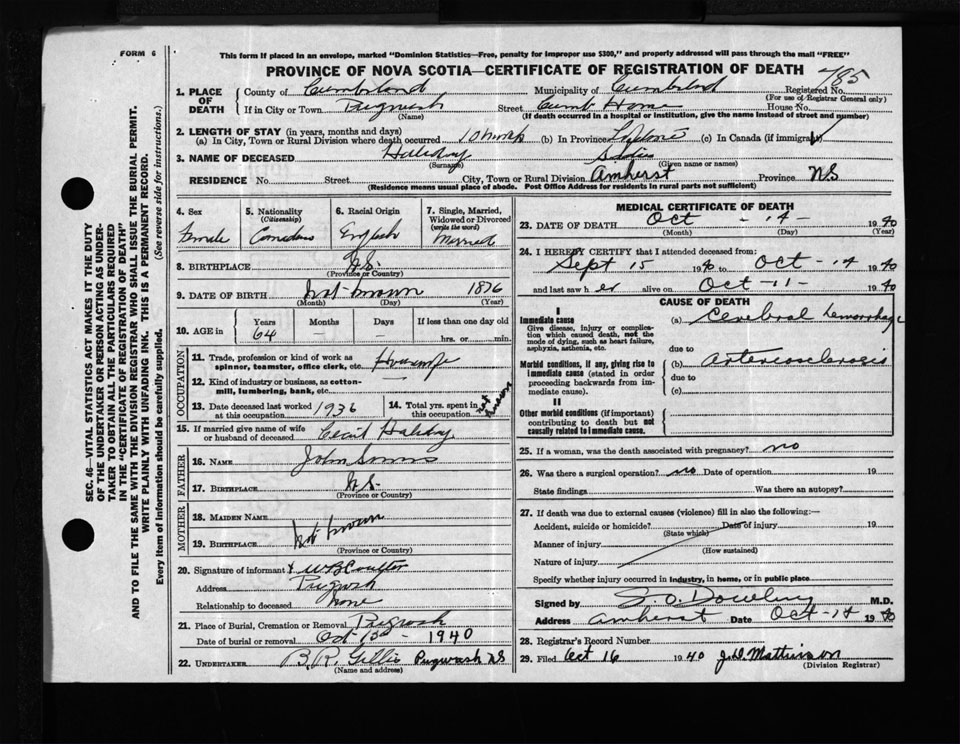 FORM 6
This form if placed in an envelope, marked "Dominion Statistics—Free, penalty for improper use $300," and properly addressed will pass through the mail "FREE"
PROVINCE OF NOVA SCOTIA—CERTIFICATE OF REGISTRATION OF DEATH
1. PLACE OF DEATH County of Cumberland Municipality of Cumberland Registered No. 785
(For use of Registrar General only)
If in City or Town Pugwash Street Cumb Home House No.
(Name) (If death occurred in a hospital or institution, give the name instead of street and number)
2. LENGTH OF STAY (in years, months and days)
(a) In City, Town or Rural Division where death occurred 10 (b) In Province (c) In Canada (if immigrant)
3. NAME OF DECEASED Haliday
(Surname) (Given name or names)
RESIDENCE No. Street City, Town or Rural Division Amherst Province NS
(Residence means usual place of abode. Post Office Address for residents in rural parts not sufficient)
4. Sex Female
5. Nationality (Citizenship) Canadian
6. Racial Origin English
7. Single, Married, Widowed or Divorced (write the word) Married
8. BIRTHPLACE N.S.
(Province or Country)
9. DATE OF BIRTH not known 1876
(Month) (Day) (Year)
10. AGE in Years Months Days If less than one day old
64 — hrs. or min.
OCCUPATION
11. Trade, profession or kind of work as spinner, teamster, office clerk, etc.
12. Kind of industry or business, as cotton-mill, lumbering, bank, etc. —
13. Date deceased last worked at this occupation 1936
14. Total yrs. spent in this occupation not known
15. If married give name of wife or husband of deceased Cecil Haliday
FATHER
16. NAME John
17. BIRTHPLACE N.S.
(Province or Country)
MOTHER
18. MAIDEN NAME
19. BIRTHPLACE not known
(Province or Country)
20. Signature of informant W B Coulter
Address Pugwash
Relationship to deceased none
21. Place of Burial, Cremation or Removal Pugwash
Date of burial or removal Oct 1940
22. UNDERTAKER B. R. Gillis Pugwash NS
(Name and address)
MEDICAL CERTIFICATE OF DEATH
23. DATE OF DEATH Oct - 14 - 1940
(Month) (Day) (Year)
24. I HEREBY CERTIFY that I attended deceased from:
Sept 15 1940 to Oct - 14 1940
and last saw her alive on Oct - 11 - 1940
CAUSE OF DEATH
I
Immediate cause
Give disease, injury or complication which caused death, not the mode of dying, such as heart failure, asphyxia, asthenia, etc.
(a) Cerebral hemorrhage
due to
Morbid conditions, if any, giving rise to immediate cause (stated in order proceeding backwards from immediate cause).
(b) arteriosclerosis
due to
(c)
II
Other morbid conditions (if important) contributing to death but not causally related to immediate cause.
25. If a woman, was the death associated with pregnancy? no
26. Was there a surgical operation? no Date of operation 19
State findings Was there an autopsy?
27. If death was due to external causes (violence) fill in also the following:—
Accident, suicide or homicide? Date of injury 19
(State which)
Manner of injury
(How sustained)
Nature of injury
Specify whether injury occurred in industry, in home, or in public place
Signed by S. O. Dowling M.D.
Address Amherst Date Oct - 14 1940
28. Registrar's Record Number
29. Filed Oct 16 1940 J. D. Mattinson
(Division Registrar)
SEC. 46—VITAL STATISTICS ACT MAKES IT THE DUTY
OF THE UNDERTAKER OR PERSON ACTING AS UNDER-
TAKER TO OBTAIN ALL THE PARTICULARS REQUIRED
IN THE "CERTIFICATE OF REGISTRATION OF DEATH"
AND TO FILE THE SAME WITH THE DIVISION REGISTRAR WHO SHALL ISSUE THE BURIAL PERMIT.
WRITE PLAINLY WITH UNFADING INK. THIS IS A PERMANENT RECORD.
Every item of information should be carefully supplied. (See reverse side for instructions.)